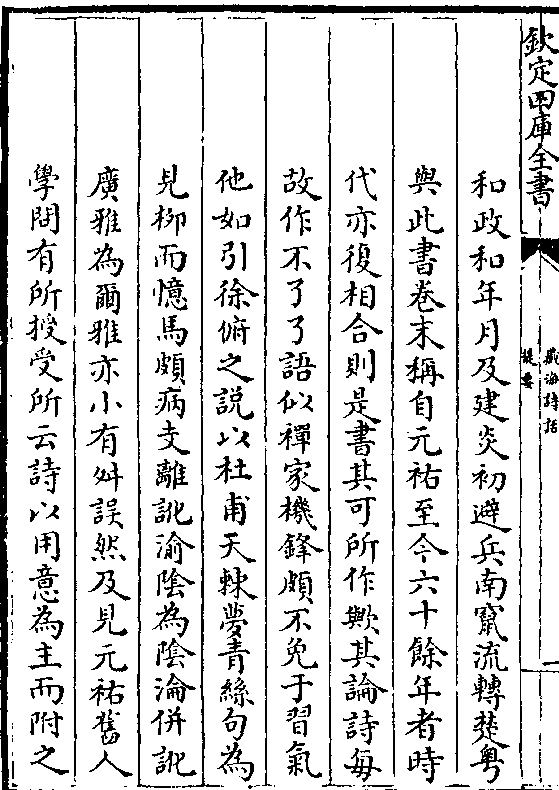 欽定四庫全書
藏海詩話
提要
和政和年月及建炎初避兵南竄流轉楚粤
與此書卷末稱自元祐至今六十餘年者時
代亦復相合則是書其可所作歟其論詩每
故作不了了語似禪家機鋒頗不免于習氣
他如引徐俯之說以杜甫天棘夢青絲句為
見柳而憶馬頗病支離訛渝陰為陰淪併訛
廣雅為爾雅亦小有舛誤然及見元祐舊人
學問有所授受所云詩以用意為主而附之